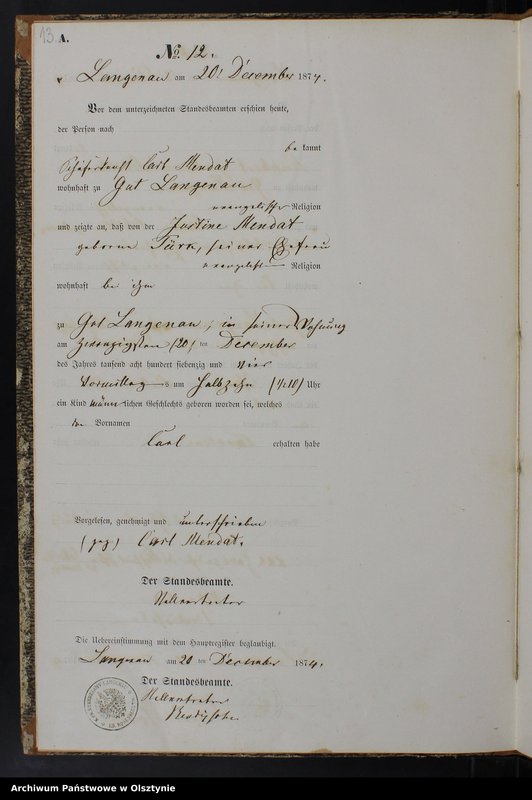 13
A.
No. 12.
Langenau am 20. December 1874.
Vor dem unterzeichneten Standesbeamten erschien heute,
der Person nach
be kannt
Carl Mendat
wohnhaft zu Gut Langenau
evangelischer Religion
und zeigte an, daß von der Justine Mendat
geborene Türk, seiner Ehefrau
evangelischer Religion
wohnhaft bei ihm
zu Gut Langenau, in seiner Wohnung
am zwanzigsten (20) ten December
des Jahres tausend acht hundert siebenzig und vier
Vormittags um halb zehn (½10) Uhr
ein Kind männlichen Geschlechts geboren worden sei, welches
Vornamen
Carl erhalten habe
Vorgelesen, genehmigt und unterschrieben
(gez) Carl Mendat.
Der Standesbeamte.
Die Uebereinstimmung mit dem Hauptregister beglaubigt.
Langenau am 20 ten December 1874.
Der Standesbeamte.
Archiwum Państwowe w Olsztynie